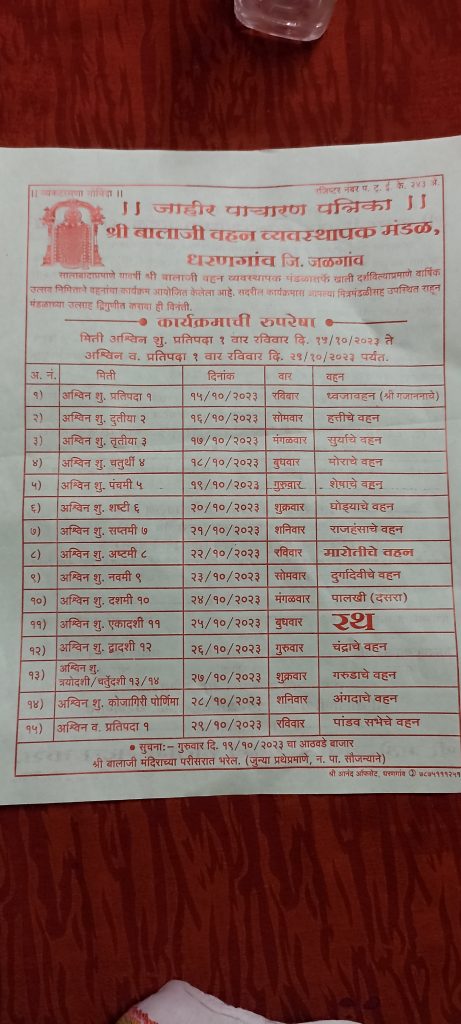 ।। व्यंकटरमणा गोविंदा ।।
रजिष्टर नंबर प. ट्र. ई. के. २४३ अे.
।। जाहीर पाचारण पत्रिका ।।
श्री बालाजी वहन व्यवस्थापक मंडळ,
धरणगांव जि. जळगांव
सालाबादाप्रमाणे यावर्षी श्री बालाजी वहन व्यवस्थापक मंडळातर्फे खाली दर्शविल्याप्रमाणे वार्षिक
उत्सव निमित्ताने वहनांचा कार्यक्रम आयोजित केलेला आहे. सदरील कार्यक्रमास आपल्या मित्रमंडळीसह उपस्थित राहून
मंडळाच्या उत्साह द्विगुणीत करावा ही विनंती.
कार्यक्रमाची रुपरेषा
मिती अश्विन शु. प्रतिपदा १ वार रविवार दि. १५/१०/२०२३ ते
अश्विन व. प्रतिपदा १ वार रविवार दि. २९/१०/२०२३ पर्यंत.
अ. नं. मिती दिनांक वार वहन
१) अश्विन शु. प्रतिपदा १ १५/१०/२०२३ रविवार ध्वजावहन (श्री गजाननाचे)
२) अश्विन शु. दुतीया २ १६/१०/२०२३ सोमवार हत्तीचे वहन
३) अश्विन शु. तृतीया ३ १७/१०/२०२३ मंगळवार सुर्याचे वहन
४) अश्विन शु. चतुर्थी ४ १८/१०/२०२३ बुधवार मोराचे वहन
५) अश्विन शु. पंचमी ५ १९/१०/२०२३ गुरुवार शेषाचे वहन
६) अश्विन शु. शष्टी ६ २०/१०/२०२३ शुक्रवार घोड्याचे वहन
७) अश्विन शु. सप्तमी ७ २१/१०/२०२३ शनिवार राजहंसाचे वहन
८) अश्विन शु. अष्टमी ८ २२/१०/२०२३ रविवार मारोतीचे वहन
९) अश्विन शु. नवमी ९ २३/१०/२०२३ सोमवार दुर्गादेवीचे वहन
१०) अश्विन शु. दशमी १० २४/१०/२०२३ मंगळवार पालखी (दसरा)
११) अश्विन शु. एकादशी ११ २५/१०/२०२३ बुधवार रथ
१२) अश्विन शु. द्वादशी १२ २६/१०/२०२३ गुरुवार चंद्राचे वहन
१३) अश्विन शु. त्रयोदशी/चर्तुदशी १३/१४ २७/१०/२०२३ शुक्रवार गरुडाचे वहन
१४) अश्विन शु. कोजागिरी पोर्णिमा २८/१०/२०२३ शनिवार अंगदाचे वहन
१५) अश्विन व. प्रतिपदा १ २९/१०/२०२३ रविवार पांडव सभेचे वहन
• सुचना:– गुरुवार दि. १९/१०/२०२३ चा आठवडे बाजार
श्री बालाजी मंदिराच्या परीसरात भरेल. (जुन्या प्रथेप्रमाणे, न. पा. सौजन्याने)
श्री आनंद ऑफसेट, धरणगांव ✆ ७८७५१११२५१